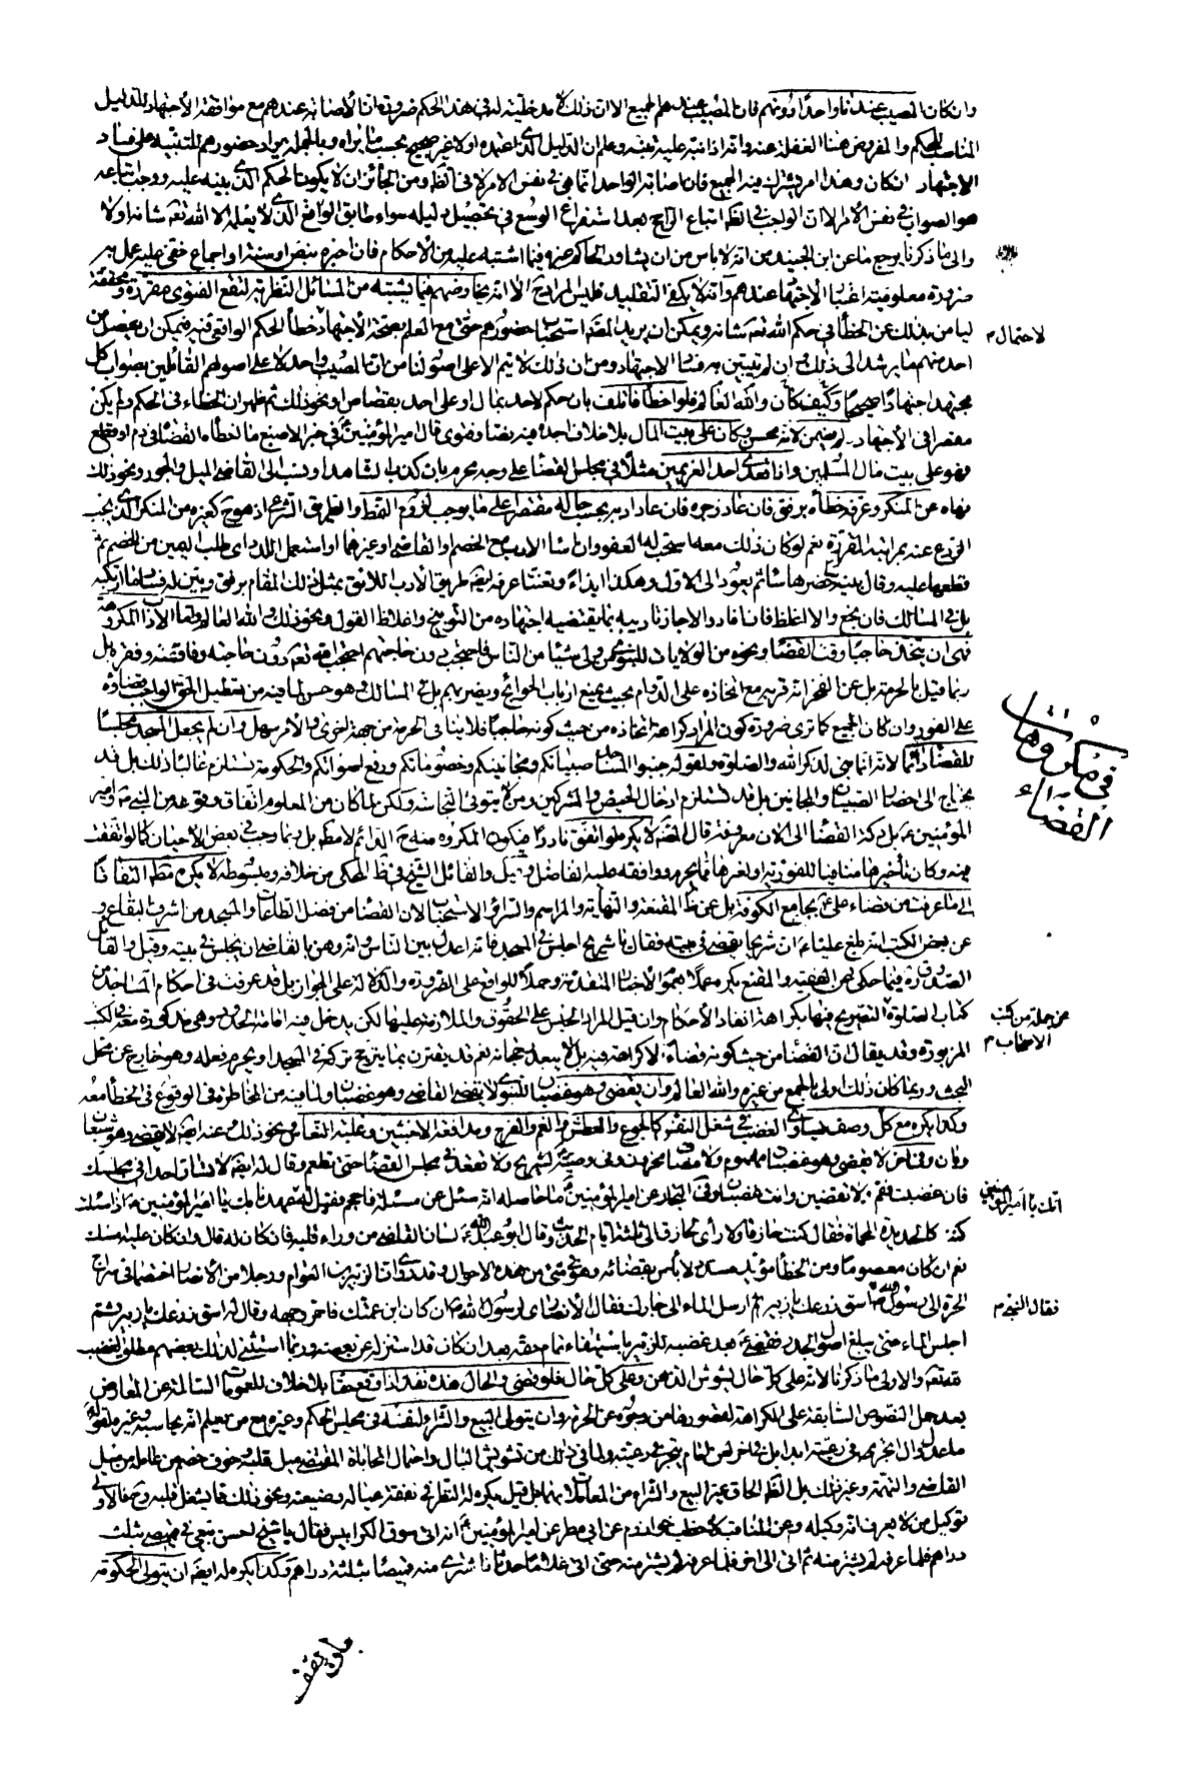 وان كان المصيب عندنا واحدا دونهم فان المصيب عندهم الجميع الا ان ذلك لا مدخلية له في هذا الحكم ضرورة ان الاصابة عندهم مع موافقة الاجتهاد للدليل
المناسب للحكم والمفروض هنا الغفلة عنه وانه اذا نبه عليه تنبه وعلم ان الدليل الذي اعتمده اولا غير صحيح بحسب ما يراه وبالجملة يراد حضورهم للتنبيه على فساد
الاجتهاد ان كان وهذا امر يشترك فيه الجميع فان اصابة الواحد انما هي في نفس الامر لا في الظ ومن الجائز ان لا يكون الحكم الذي ينبه عليه ووجب اتباعه
هو الصواب في نفس الامر الا ان الواجب في الظ اتباع الراجح بعد استفراغ الوسع في تحصيل دليله سواء طابق الواقع الذي لا يعلمه الا الله تعه شانه او لا
والى ما ذكرنا يرجع ما عن ابن الجنيد من انه لا باس من ان يشاور الحاكم غيره فيما اشتبه عليه من الاحكام فان اخبره بنص او سنة او اجماع خفي عليه عمل به
ضرورة معلومية اعتبار الاجتهاد عندهم وانه لا يكفي التقليد فليس المراد ح الا انه يخاوضهم فيما يشتبه من المسائل النظرية لتقع الفتوى مقررة ومحققة
ليامن بذلك عن الخطأ في حكم الله تعه شانه ويمكن ان يريد المصنف استحباب حضورهم حتى مع العلم بصحة الاجتهاد خطأ الحكم الواقعي فيه فيمكن ان يحصل من
لاحتمال م
احد منهم ما يرشد الى ذلك وان لم يتبين به فساد الاجتهاد ومن ان ذلك لا يتم الا على اصولنا من ان المصيب واحد لا على اصولهم القائلين بصواب كل
مجتهد اجتهادا صحيحا وكيف كان والله العالم فلو اخطأ فاتلف بان حكم لاحد بمال او على احد بقصاص او نحو ذلك ثم ظهر ان الخطاء في الحكم ولم يكن
مقصرا في الاجتهاد لم يضمن لانه محسن وكان على بيت المال بلا خلاف اجده فيه نصا وفتوى قال امير المؤمنين ع في خبر الاصبغ ما اخطأه القضاة في دم او قطع
فهو على بيت مال المسلمين واذا تعدى احد الغريمين مثلا في مجلس القضاء على وجه محرم بان كذب الشاهد او نسب الى القاضي الميل والجور ونحو ذلك
نهاه عن المنكر وعرفه خطأه برفق فان عاد زجره فان عاد ادبه بحسب حاله مقتصرا على ما يوجب لزوم النمط والطريق الشرعي اذ هو ح كغيره من المنكر الذي يجب
الردع عنه بمراتبه المقررة نعم لو كان ذلك معه استحب له العفو وان اساء الادب مع الخصم والقاضي او غيرهما او استعمل اللدد اي طلب اليمين من الخصم ثم
قطعها عليه وقال بينة احضرها ثم يعود الى الاول وهكذا ايذاء وتعنتا عرفه ايضا طريق الادب اللائق بمثل ذلك المقام برفق وبين له فساد ما ارتكبه
بل في المسالك فان نجع والا اغلظ فان افاد والا جاز تاديبه بما يقتضيه اجتهاده من التوبيخ واغلاظ القول ونحو ذلك والله العالم واما الاداب المكروهة
فهي ان يتخذ حاجبا وقت القضاء ونحوه من الولايات للنبوي من ولي شيئا من الناس فاحتجب دون حاجتهم احتجب الله تعه دون حاجته وفاقته وفقره بل
ربما قيل بالحرمة بل عن الفخر انه قربه مع اتخاذه على الدوام بحيث يمنع ارباب الحوائج ويضر بهم بل في المسالك وهو حسن لما فيه من تعطيل الحق الواجب قضاؤه
على الفور وان كان الجميع كما ترى ضرورة كون المراد كراهة اتخاذه من حيث كونه حاجبا فلا ينافي الحرمة من جهة اخرى والامر سهل وان لم يجعل المسجد مجلسا
في مكروهات القضاء
للقضاء دائما لانه انما بني لذكر الله والصلوة ولقوله جنبوا المساجد صبيانكم ومجانينكم وخصوماتكم ورفع اصواتكم والحكومة تستلزم غالبا ذلك بل قد
يحتاج الى احضار الصبيان والمجانين بل قد تستلزم ادخال الحيض والمشركين ومن لا يتوقى النجاسة ولكن لما كان من المعلوم اتفاق وقوعه من النبي ص وامير
المؤمنين ع بل دكة القضاء الى الان معروفة قال المصنف لا يكره لو اتفق نادرا فيكون المكروه منه ح الدائم لا مطلقا بل ربما وجب في بعض الاحيان كما لو اتفقت
فيه وكان تاخيرها منافيا للفورية او لغير ما يحرم ووافقه عليه الفاضل في بعض كتبه والقائل الشيخ في ظ المحكي من خلافه ومبسوطه لا يكره مطلقا التفاتا
الى ما عرفت من قضاء علي ع بجامع الكوفة بل عن ظ المقنعة والنهاية والمراسم والسرائر الاستحباب لان القضاء من افضل الطاعات والمسجد من اشرف البقاع و
عن بعض الكتب انه بلغ عليا ع ان شريحا يقضي في بيته فقال يا شريح اجلس في المسجد فانه اعدل بين الناس وانه وهن بالقاضي ان يجلس في بيته وقيل والقائل
الصدوق ره فيما حكي عن الفقيه والمقنع يكره عملا بعموم الاخبار المتقدمة وحملا للواقع على الضرورة والدلالة على الجواز بل قد عرفت في احكام المساجد من
كتاب الصلوة التصريح فيها بكراهة انفاذ الاحكام وان قيل المراد الحبس على الحقوق والملازمة عليها لكن يدخل فيه اقامة الحدود وهي مذكورة معه في الكتب
عن جملة من كتب الاصحاب م
المزبورة وقد يقال ان القضاء من حيث كونه قضاء لا كراهة فيه بل لا يبعد رجحانه نعم قد يقترن بما يترجح تركه في المسجد او يحرم فعله وهو خارج عن محل
البحث وربما كان ذلك اولى بالجمع من غيره والله العالم وان يقضي وهو غضبان للنبوي لا يقضي القاضي وهو غضبان ولما فيه من المخاطرة في الوقوع في الخطأ معه
وكذا يكره مع كل وصف يساوي الغضب في شغل النفس كالجوع والعطش والغم والفرح ومدافعة الاخبثين وغلبة النعاس ونحو ذلك وعنه ايضا لا يقضي وهو شبعان
ريان وفي اخر لا يقضي وهو غضبان مهموم ولا مصاب محزون وفي وصيته لشريح ولا تقعدن في مجلس القضاء حتى تطعم وقال له ايضا لا تشاور احدا في مجلسك
فان غضبت فقم ولا تقضين وانت غضبان وفي البحار عن امير المؤمنين ع ما حاصله انه سئل عن مسئلة فاجم فقيل له قد عهدناك يا امير المؤمنين اذا سئلت
كنت كالحديدة المحماة فقال كنت حازقا ولا رأي لحازق الى ثلثة ايام الحديث وقال ابو عبد الله ع لسان القاضي من وراء قلبه فان كان له قال وان كان عليه امسك
نعم ان كان معصوما ومن الخطأ مؤيد مسدد لا بأس بقضائه وهو في شيء من هذه الاحوال وقد روي ان الزبير بن العوام ورجلا من الانصار اختصما في شراج
الحرة الى رسول الله ص اسق زرعك يا زبير ثم ارسل الماء الى جارك فقال الانصاري لرسول الله ص ان كان ابن عمتك فاحمر وجهه وقال له اسق زرعك يا زبير ثم
فقال النبي ص م
احبس الماء حتى يبلغ اصول الجدر فقضى ص بعد غضبه للزبير باستيفاء تمام حقه بعد ان كان قد استنزله عن بعضه وربما استثنى لذلك بعضهم مطلق الغضب
لله تعه والاولى ما ذكرنا لانه على كل حال يشوش الذهن وعلى كل حال فلو قضى والحال هذه نفذ اذا وقع حقا بلا خلاف للعمومات السالمة عن المعارض
بعد حمل النصوص السابقة على الكراهة لقصورها من وجوه عن الحرمة وان يتولى البيع والشراء لنفسه في مجلس الحكم وغيره مع من يعلم انه يحاسبه وغيره لقوله ص
ما عدل وال اتجر في رعيته ابدا بل في اخر لعن امام يتجر في رعيته ولما في ذلك من تشويش البال واحتمال المحاباة المقتضي ميل قلبه وخوف خصم من عامله من ميل
القاضي والتهمة وغير ذلك بل الظ الحاق غير البيع والشراء من المعاملات بهما بل قيل يكره له النظر في نفقة عياله وضيعته ونحو ذلك مما يشغل قلبه وح فالاولى
توكيل من لا يعرف انه وكيله وعن المناقب لاخطب خوارزم عن ابي مطر عن امير المؤمنين ع انه اتى سوق الكرابيس فقال يا شيخ احسن بيعي في قميص بثلث
دراهم فلما عرفه لم يشتر منه ثم اتى الى اخر فلما عرفه لم يشتر منه حتى اتى غلاما حدثا فاشترى منه قميصا بثلثة دراهم وكذا يكره له ايضا ان يتولى الحكومة